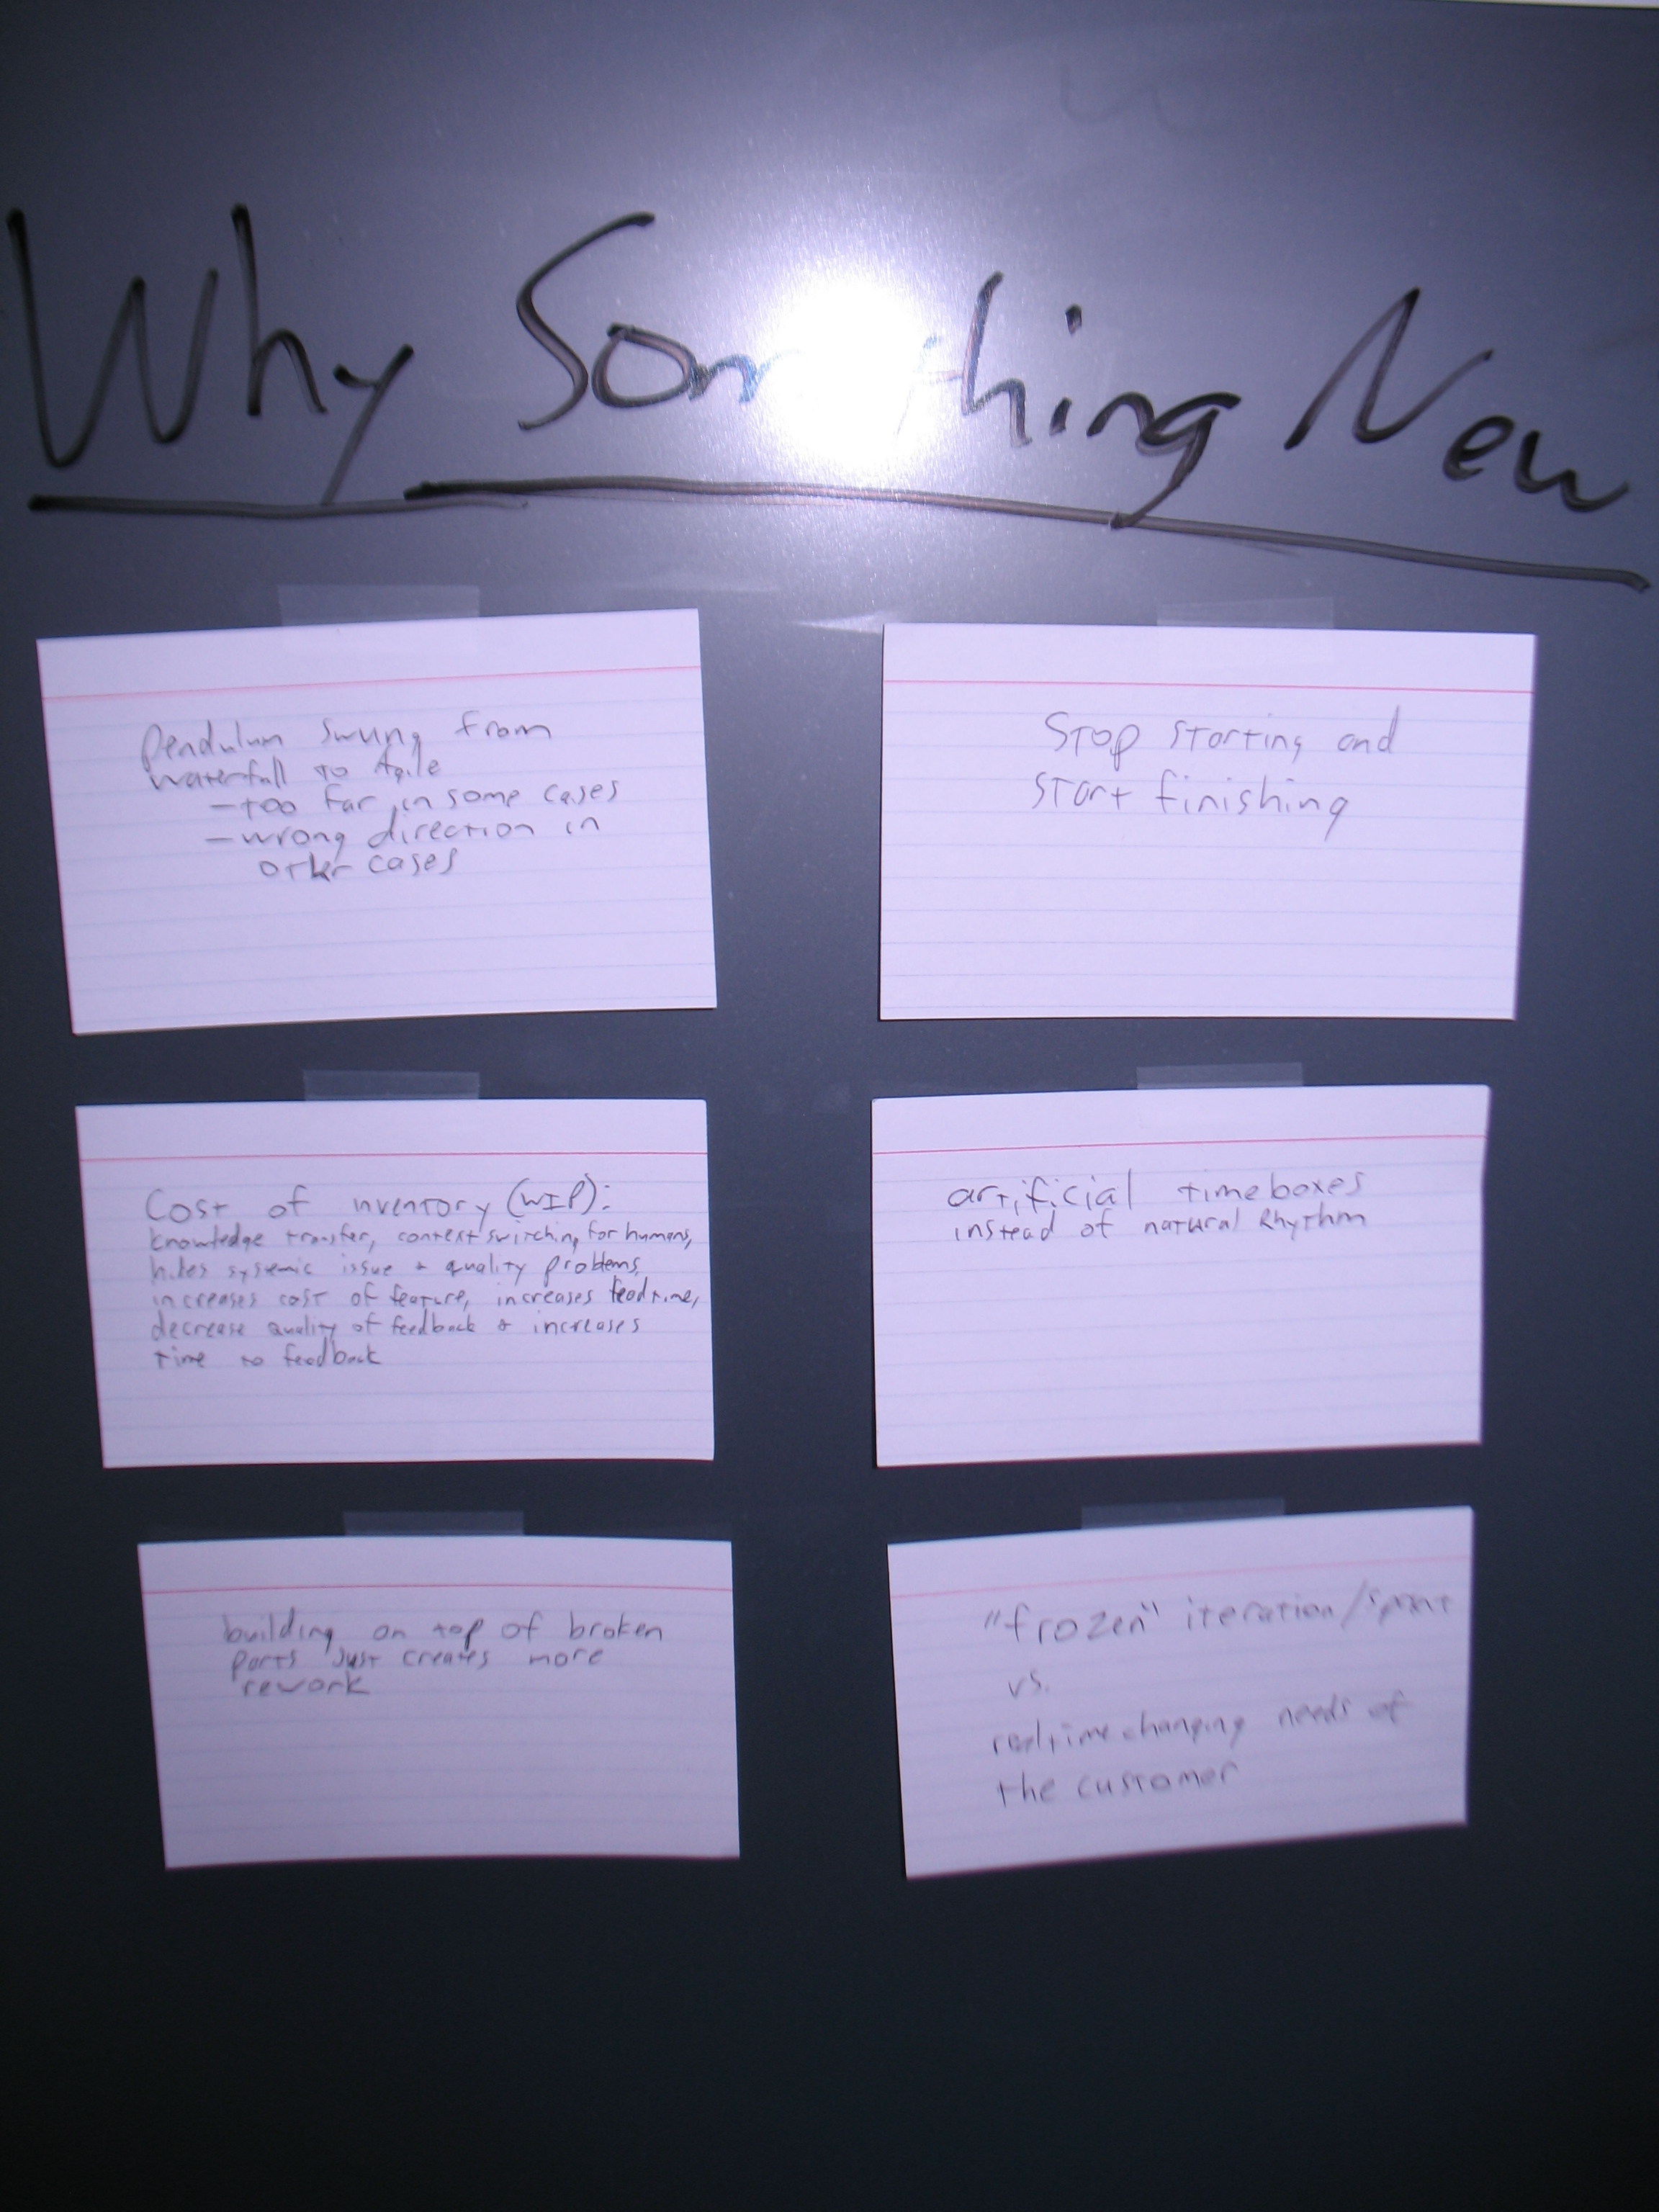 Why Something New
Pendulum swung from
waterfall to Agile
- too far in some cases
- wrong direction in
other cases
Stop starting and
start finishing
Cost of inventory (WIP):
knowledge transfer, context switching for humans,
hides systemic issue + quality problems,
increases cost of feature, increases lead time,
decrease quality of feedback + increases
time to feedback
artificial timeboxes
instead of natural Rhythm
building on top of broken
parts just creates more
rework
"frozen" iteration/sprint
vs.
realtime changing needs of
the customer